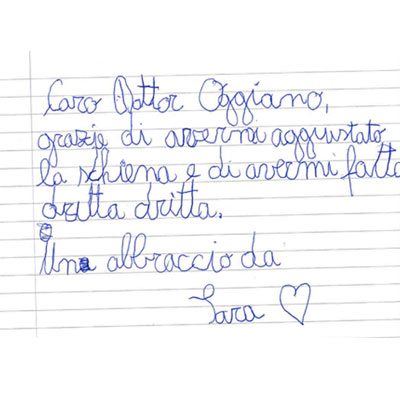 Caro Dottor Oggiano,
grazie di avermi aggiustato
la schiena e di avermi fatto
dritta dritta.
Un abbraccio da
Sara ♡